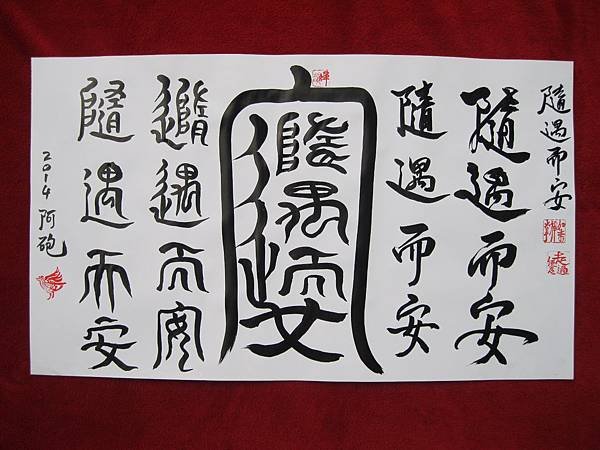 隨遇而安
隨遇而安
隨遇而安
隨遇而安
隨遇而安
隨遇而安
2014 阿砲